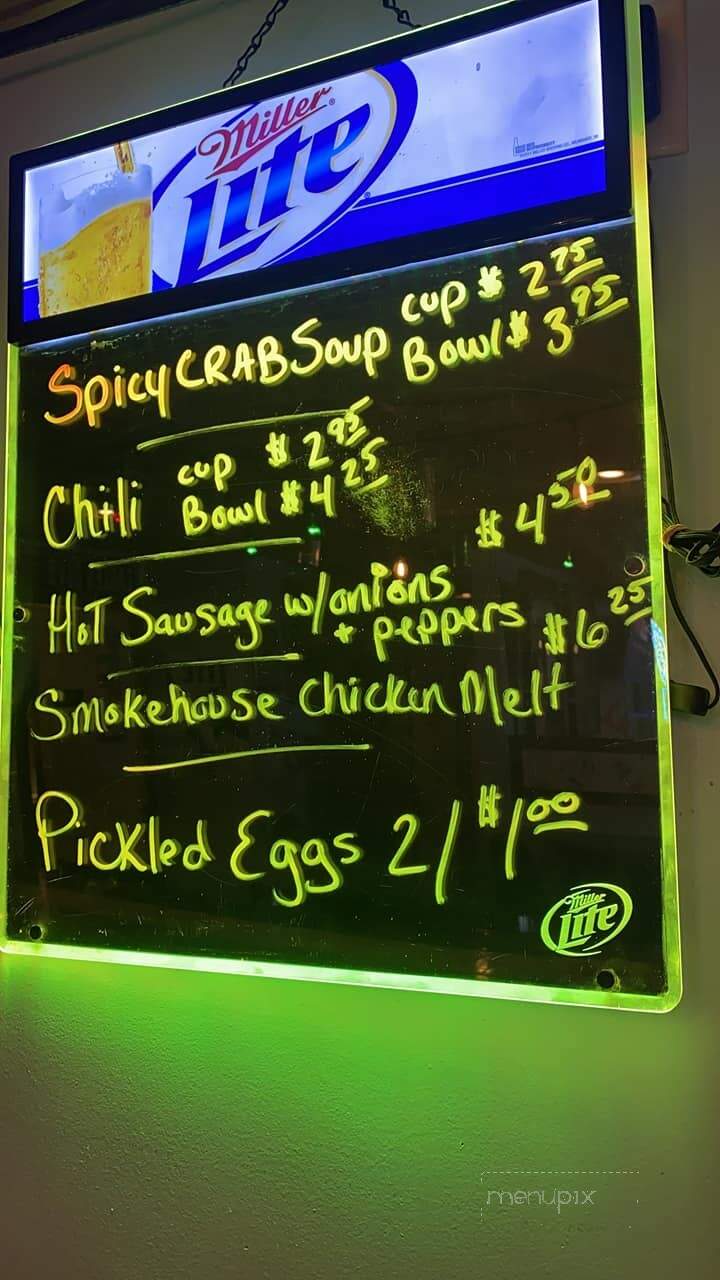 Miller
Lite
Spicy CRAB Soup cup $2.75
Bowl $3.95
Chili cup $2.95
Bowl $4.25
Hot Sausage w/onions $4.50
+ peppers
Smokehouse Chicken Melt $6.25
Pickled Eggs 2/$1.00
Miller
Lite
menupix